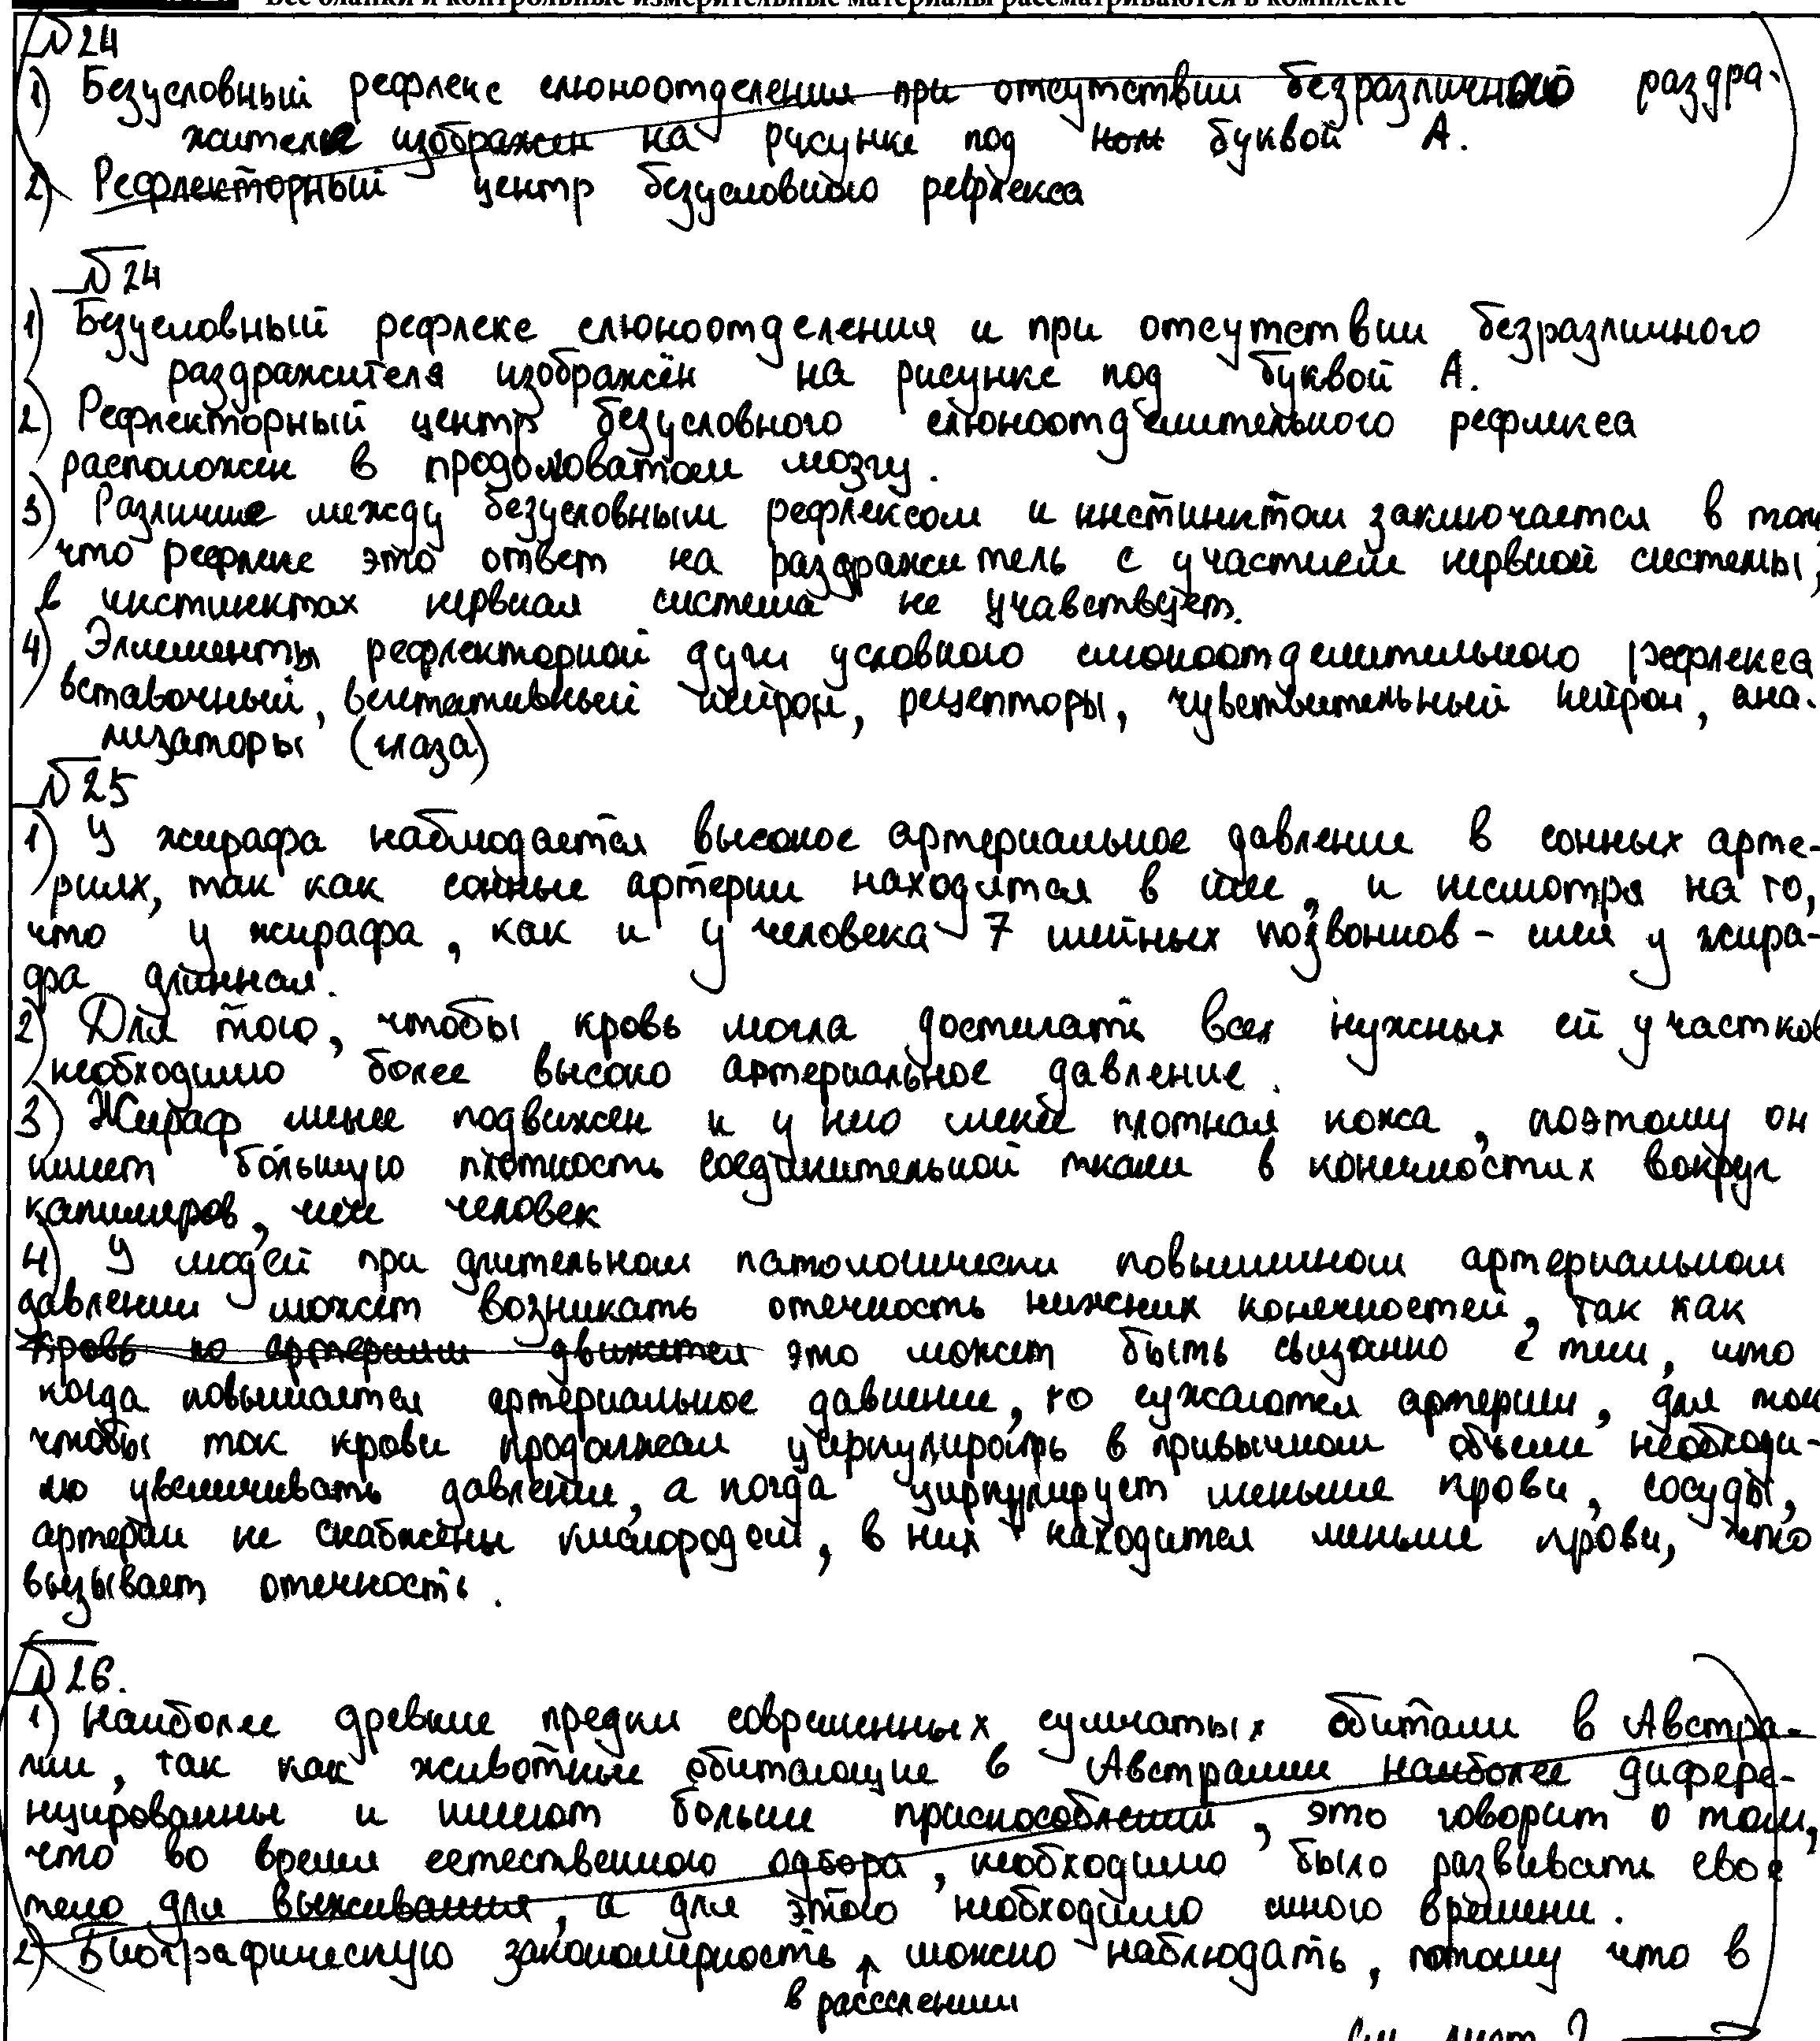 Все бланки и контрольные измерительные материалы рассматриваются в комплекте
№24
1) Безусловный рефлекс слюноотделения при отсутствии безразличного раздра-
жителе изображен на рисунке под ном буквой А.
2) Рефлекторный центр безусловного рефлекса
№24
1) Безусловный рефлекс слюноотделения и при отсутствии безразличного
раздражителя изображён на рисунке под буквой А.
2) Рефлекторный центр безусловного слюноотделительного рефлекса
расположен в продолговатом мозгу.
3) Различие между безусловным рефлексом и инстинктом заключается в том,
что рефлекс это ответ на раздражитель с участием нервной системы,
в инстинктах нервная система не учавствует.
4) Элименты рефлекторной дуги условного слюноотделительного рефлекса
вставочный, вегетативный нейрон, рецепторы, чувствительный нейрон, ана-
лизаторы (глаза)
№25
1) У жирафа наблюдается высокое артериальное давление в сонных арте-
риях, так как сонные артерии находится в шее, и несмотря на то,
что у жирафа, как и у человека 7 шейных позвонков - шея у жира-
фа длинная.
2) Для того, чтобы кровь могла достигать всех нужных ей участков
необходимо более высоко артериальное давление.
3) Жираф менее подвижен и у него менее плотная кожа, поэтому он
имеет большую плотность соединительной ткани в конечностях вокруг
капилляров, чем человек
4) У людей при длительном патологически повышенном артериальном
давлении может возникать отечность нижних конечностей, так как
кровь по артериям движется это может быть связанно с тем, что
когда повышается артериальное давление, то сужаются артерии, для того
чтобы ток крови продолжал циркулировать в привычном объеме необходи-
мо увеличивать давление, а когда циркулирует меньше крови, сосуды,
артерии не снабжены кислородом, в них находится меньше крови, что
вызывает отечность.
№26.
1) Наиболее древние предки современных сумчатых обитали в Австра-
лии, так как животные обитающие в Австралии наиболее дифере-
нцированны и имеют больше приспособлений, это говорит о том,
что во время естественного отбора, необходимо было развивать свое
тело для выживания, а для этого необходимо много времени.
2) Биографическую закономерность можно наблюдать, потому что в
в расселении
см. лист 2